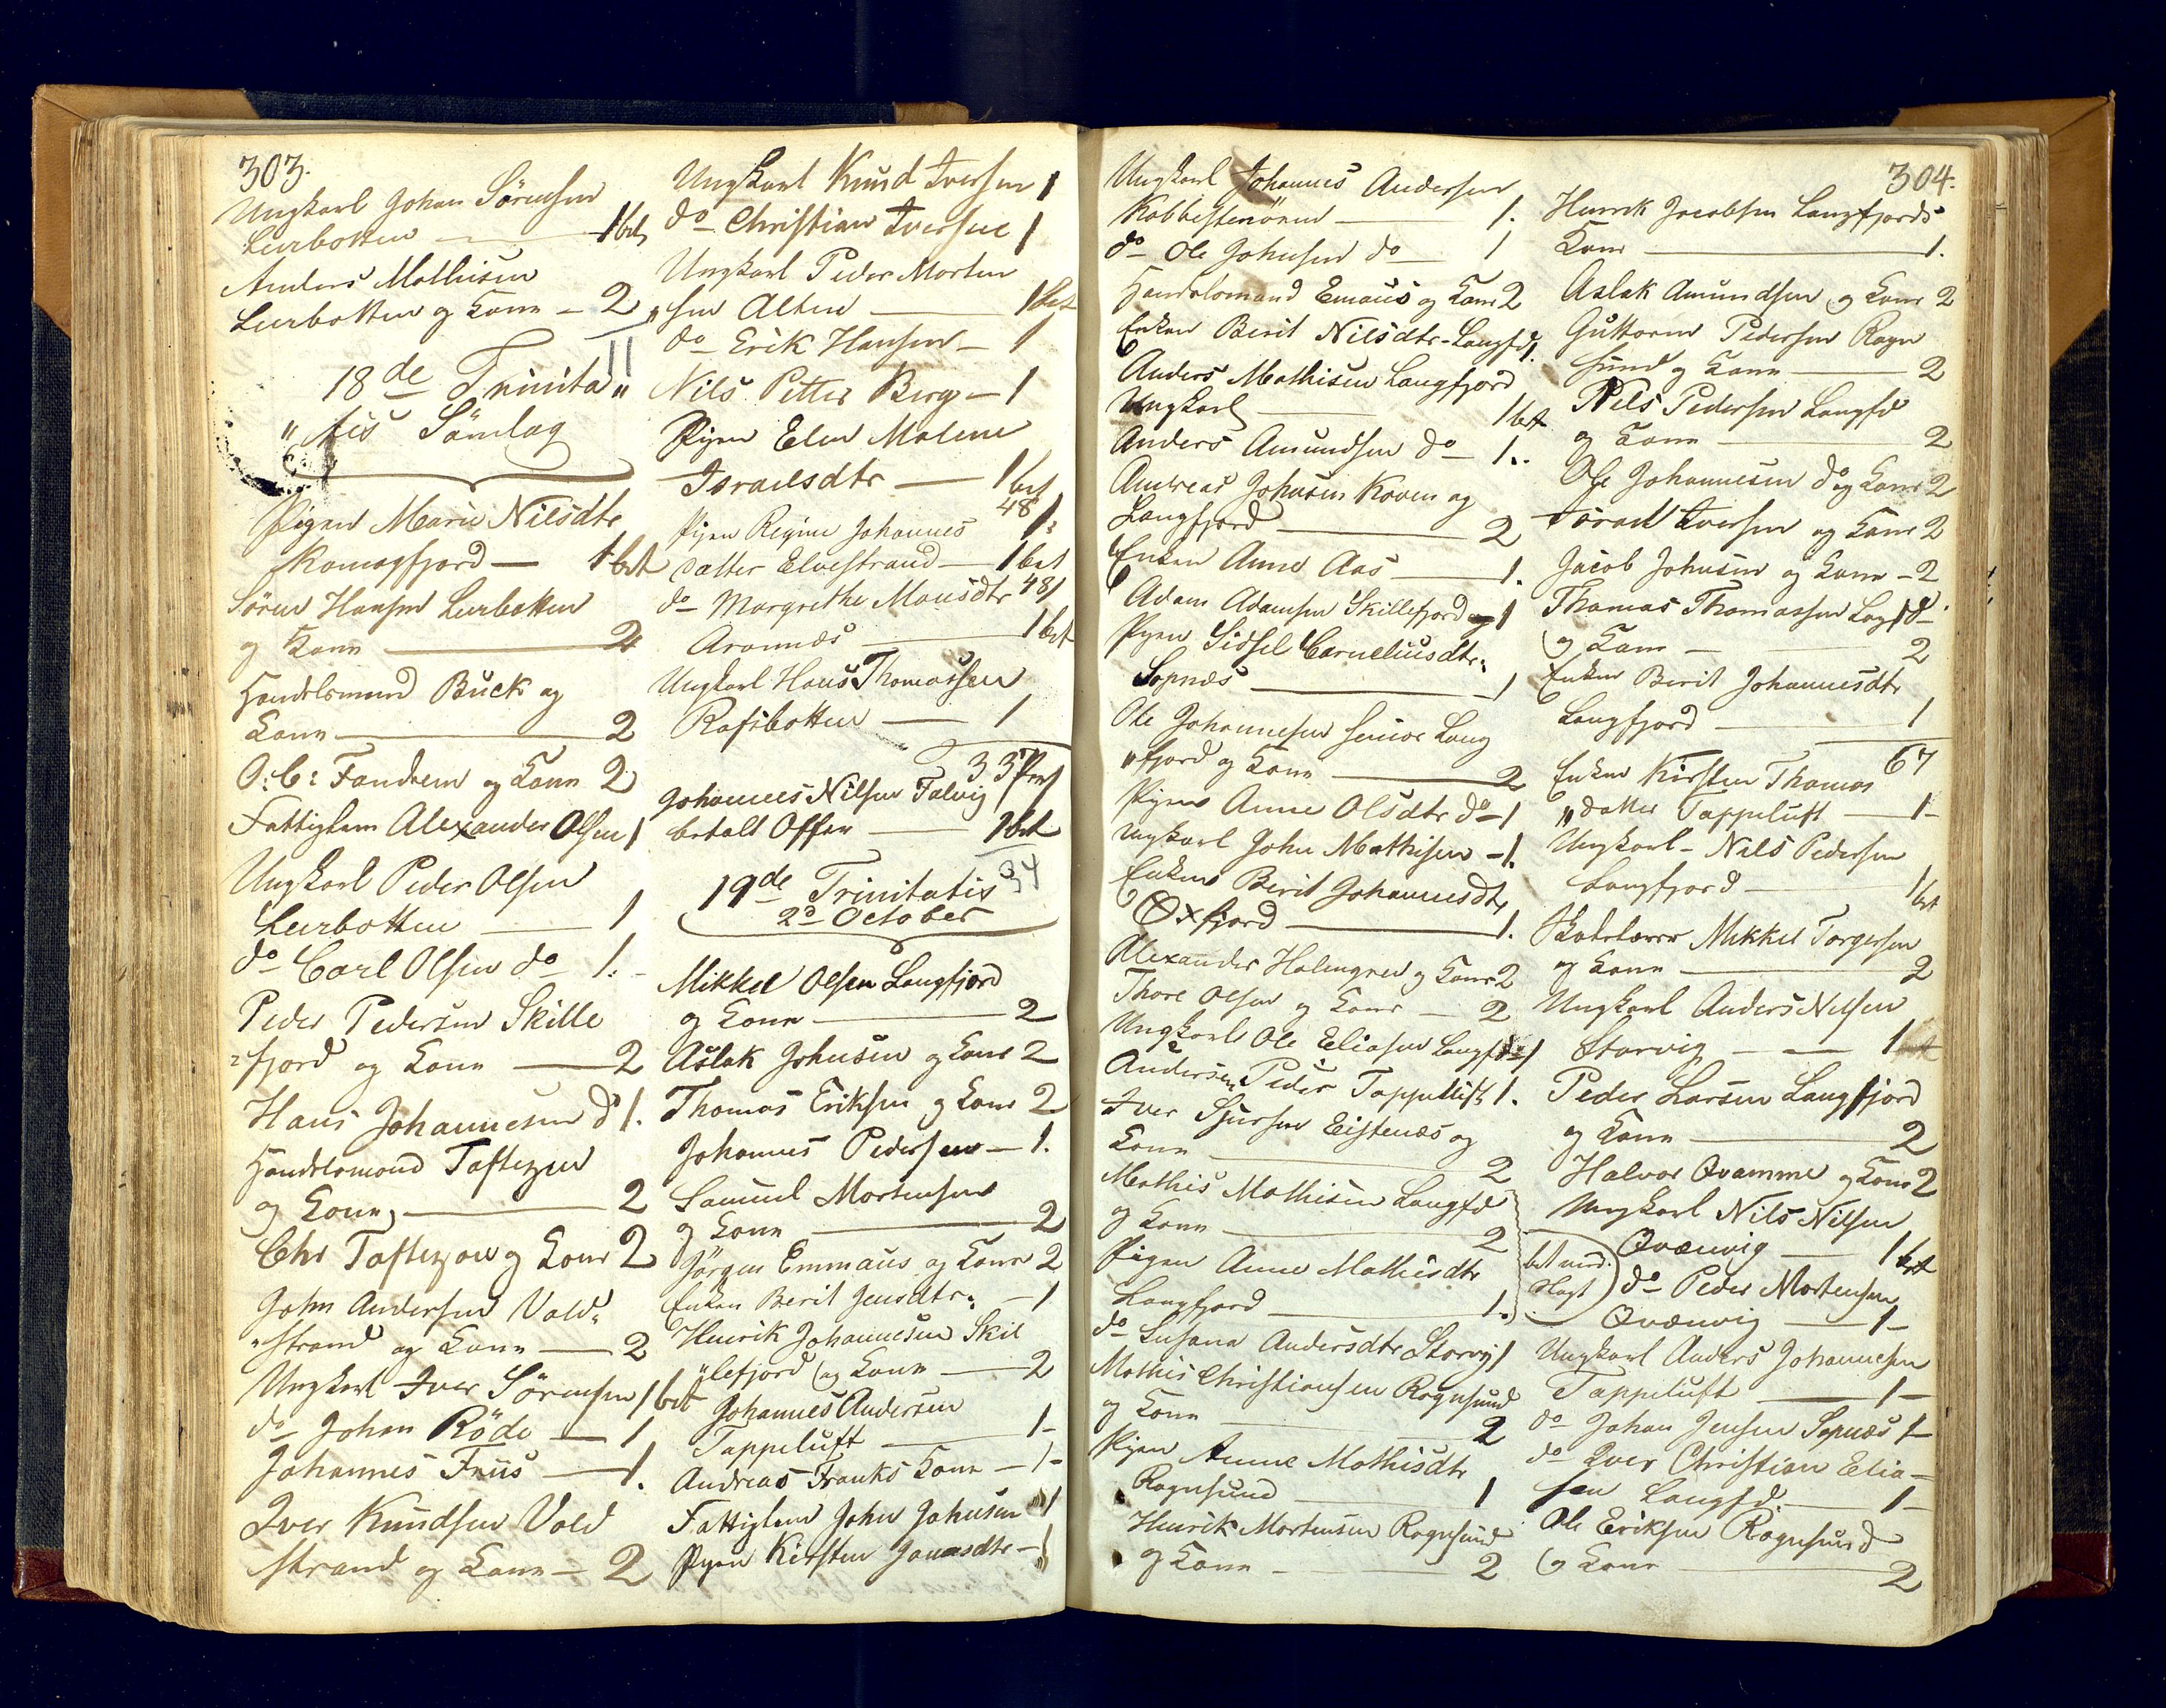 303.
Ungkarl Johan Sörensen
Leerbotten — 1 bet
Anders Mathisen
Leerbotten og Kone — 2
18de Trinita„
„tis Söndag
Pigen Marie Nilsdtr
Komagfjord — 1 bet
Sören Hansen Leerbotten
og Kone — 2
Handelsmand Buck og
Kone — 2
O: C: Fandrem og Kone 2
Fattiglem Alexander Olsen 1
Ungkarl Peder Olsen
Leerbotten — 1
do Carl Olsen do 1.
Peder Pedersen Skille
fjord og Kone — 2
Hans Johannesen do 1.
Handelsmand
og Kone — 2
Chr og Kone 2
John Andersen Vold„
„strand og Kone — 2
Ungkarl Iver Sörensen 1 bet
do Johan Röde — 1
Johannes Friis — 1.
Iver Knudsen Vold
strand og Kone — 2
Ungkarl Knud Iversen 1
do Christian Iversen 1
Ungkarl Peder Morten
„sen Alten — 1 bet
do Erik Hansen — 1
Nils Petter Berg — 1
Pigen Elen Malene
Israelsdtr — 1 bet
48
Pigen Regine Johannes 1
datter Elvestrand — 1 bet
do Margrethe Monsdtr 48 1
Aronnæs — 1 bet
Ungkarl Hans Thomassen
Rafsbotten — 1
33
Johannes Nilsen Talvig
betalt Offer — 1 bet
34
19de Trinitatis
2d October
Mikkel Olsen Langfjord
og Kone — 2
Aslak Johnsen og Kone 2
Thomas Eriksen og Kone 2
Johannes Pedersen — 1.
Samuel Mortensen
og Kone — 2
Jörgen Emmaus og Kone 2
Enken Berit Jensdtr — 1
Henrik Johannesen Skil
„lefjord og Kone — 2
Johannes Andersen
Tappeluft — 1-
Andreas Franks Kone — 1-
Fattiglem John Johnsen 1
Pigen Kirsten Jonasdtr — 1
304.
Ungkarl Johannes Andersen
— 1.
do Ole Johnsen do — 1
Handelsmand Emaus og Kone 2
Enken Berit Nilsdtr Langfd 1.
Anders Mathisen Langfjord
Ungkarl — 1 bet
Anders Amundsen do — 1.
Andreas Johnsen Koven og
Langfjord — 2
Enken Anne Aas — 1.
Adam Adamsen Skillefjord — 1
Pigen Sidsel Corneliusdtr
Sopnæs — 1
Ole Johannesen Senior Lang
„fjord og Kone — 2
Pigen Anne Olsdtr do — 1
Ungkarl John Mathisen — 1.
Enken Berit Johannesdtr
Oxfjord — 1.
Alexander Holmgren og Kone 2
Thore Olsen og Kone — 2
Ungkarl Ole Eliasen Langfd 1
Andersen Peder Tappeluft 1.
Iver Sjursen og
Kone — 2
Mathis Mathisen Langfd
og Kone — 2
Pigen Anne Mathisdtr
Langfjord — 1.
do Susana Andersdtr Storvig 1
Mathis Christiansen Rognsund
og Kone — 2
Pigen Anne Mathisdtr
Rognsund — 1
Henrik Mortensen Rognsund
og Kone — 2
Henrik Jacobsen Langfjords
Kone — 1.
Aslak Amundsen og Kone 2
Guttorm Pedersen Rogn
sund og Kone — 2
Nils Pedersen Langfd
og Kone — 2
Ole Johannesen do og Kone 2
Israel Iversen og Kone 2
Jacob Johnsen og Kone — 2
Thomas Thomassen Lagfd
og Kone — 2
Enken Berit Johannesdtr
Langfjord — 1
67
Enken Kirsten Thomas
„datter Tappeluft — 1-
Ungkarl Nils Pedersen
Langfjord — 1 bet
Mikkel Torgersen
og Kone — 2
Ungkarl Anders Nilsen
Storvig — 1
Peder Larsen Langfjord
og Kone — 2
Halvor Qvamme og Kone 2
Ungkarl Nils Nilsen
Qvænvig — 1 bet
bet med
Slagt
do Peder Mortensen
Qvænvig — 1-
Ungkarl Anders Johannesen
Tappeluft — 1-
do Johan Jensen Sopnæs 1-
do Iver Christian Elia-
sen Langfd. — 1-
Ole Eriksen Rognsund
og Kone — 2